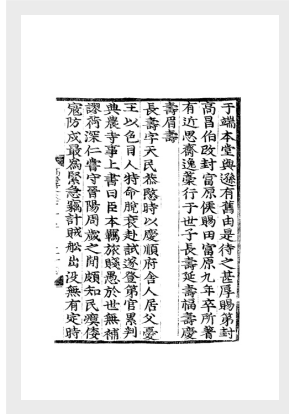 于端本堂與遜有舊由是待之甚厚賜第封
高昌伯改封富原侯賜田富原九年卒所著
有近思齋逸藁行于世子長壽延壽福壽慶
壽眉壽
長壽字天民恭愍時以慶順府舍人居父憂
王以色目人特命脫衰赴試遂登第官累判
典農寺事上書曰臣本羈旅賤愚於世無補
謬荷深仁嘗守晉陽周歲之間頗知民瘼倭
寇防戍最爲緊急竊計賊舩出沒無有定時